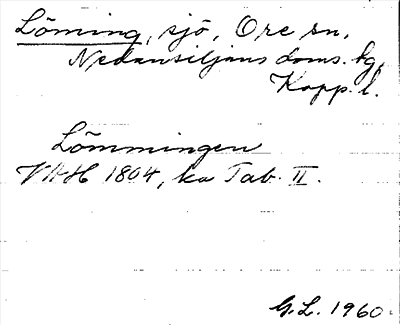 Löming, sjö, Ore sn,
Nedansiljans doms. tg,
Kopp. l.
Lömmingen
VAH 1804, ka Tab. II.
G.L. 1960.